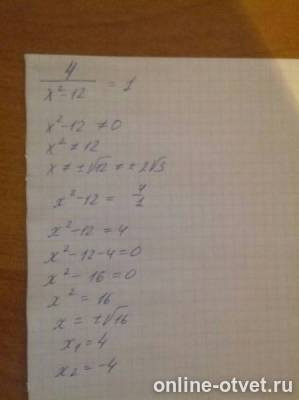 4/(x²-12) = 1
x²-12 ≠ 0
x² ≠ 12
x ≠ ±√12 ≠ ±2√3
x²-12 = 4/1
x²-12 = 4
x²-12-4=0
x²-16=0
x²=16
x=±√16
x₁=4
x₂=-4
online-otvet.ru